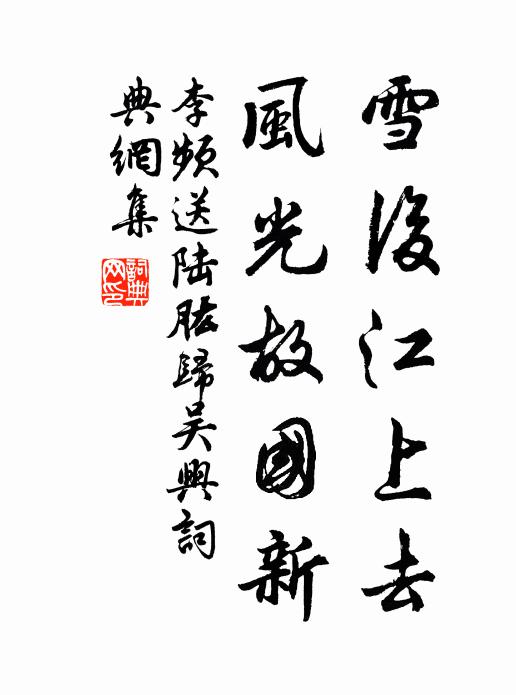 雪後江上去
風光故國新
李頻送陸肱歸吳興詞
典網集
詞典網印